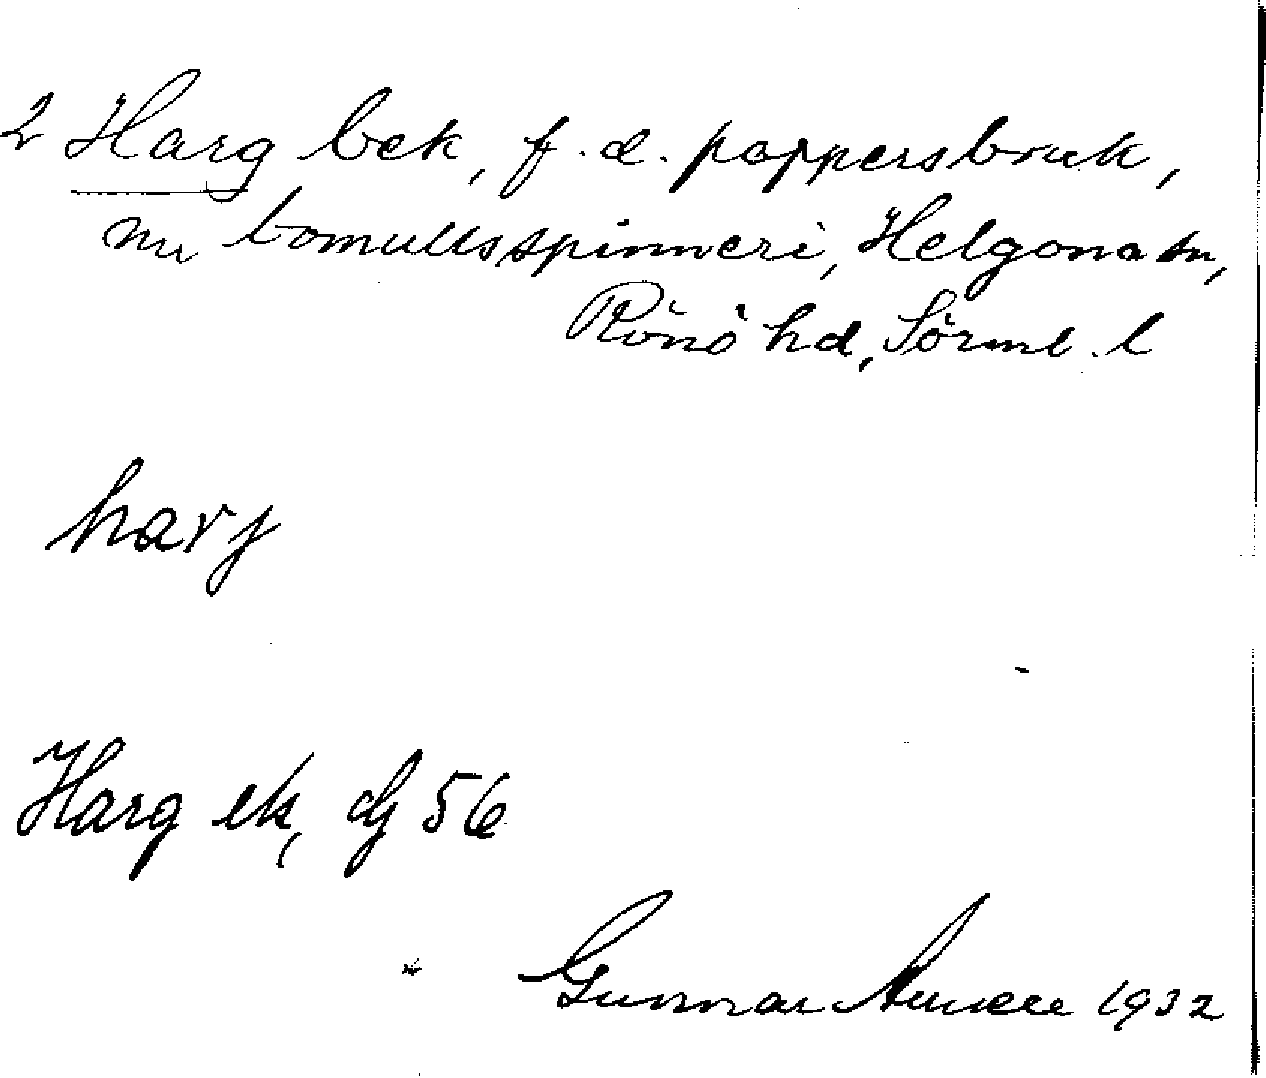 2 Harg bek, f.d. pappersbruk,
nu bomullsspinneri, Helgona sn,
Rönö hd, Sörml. l
harj
Harg ek, dj 56
Gunnar 1932